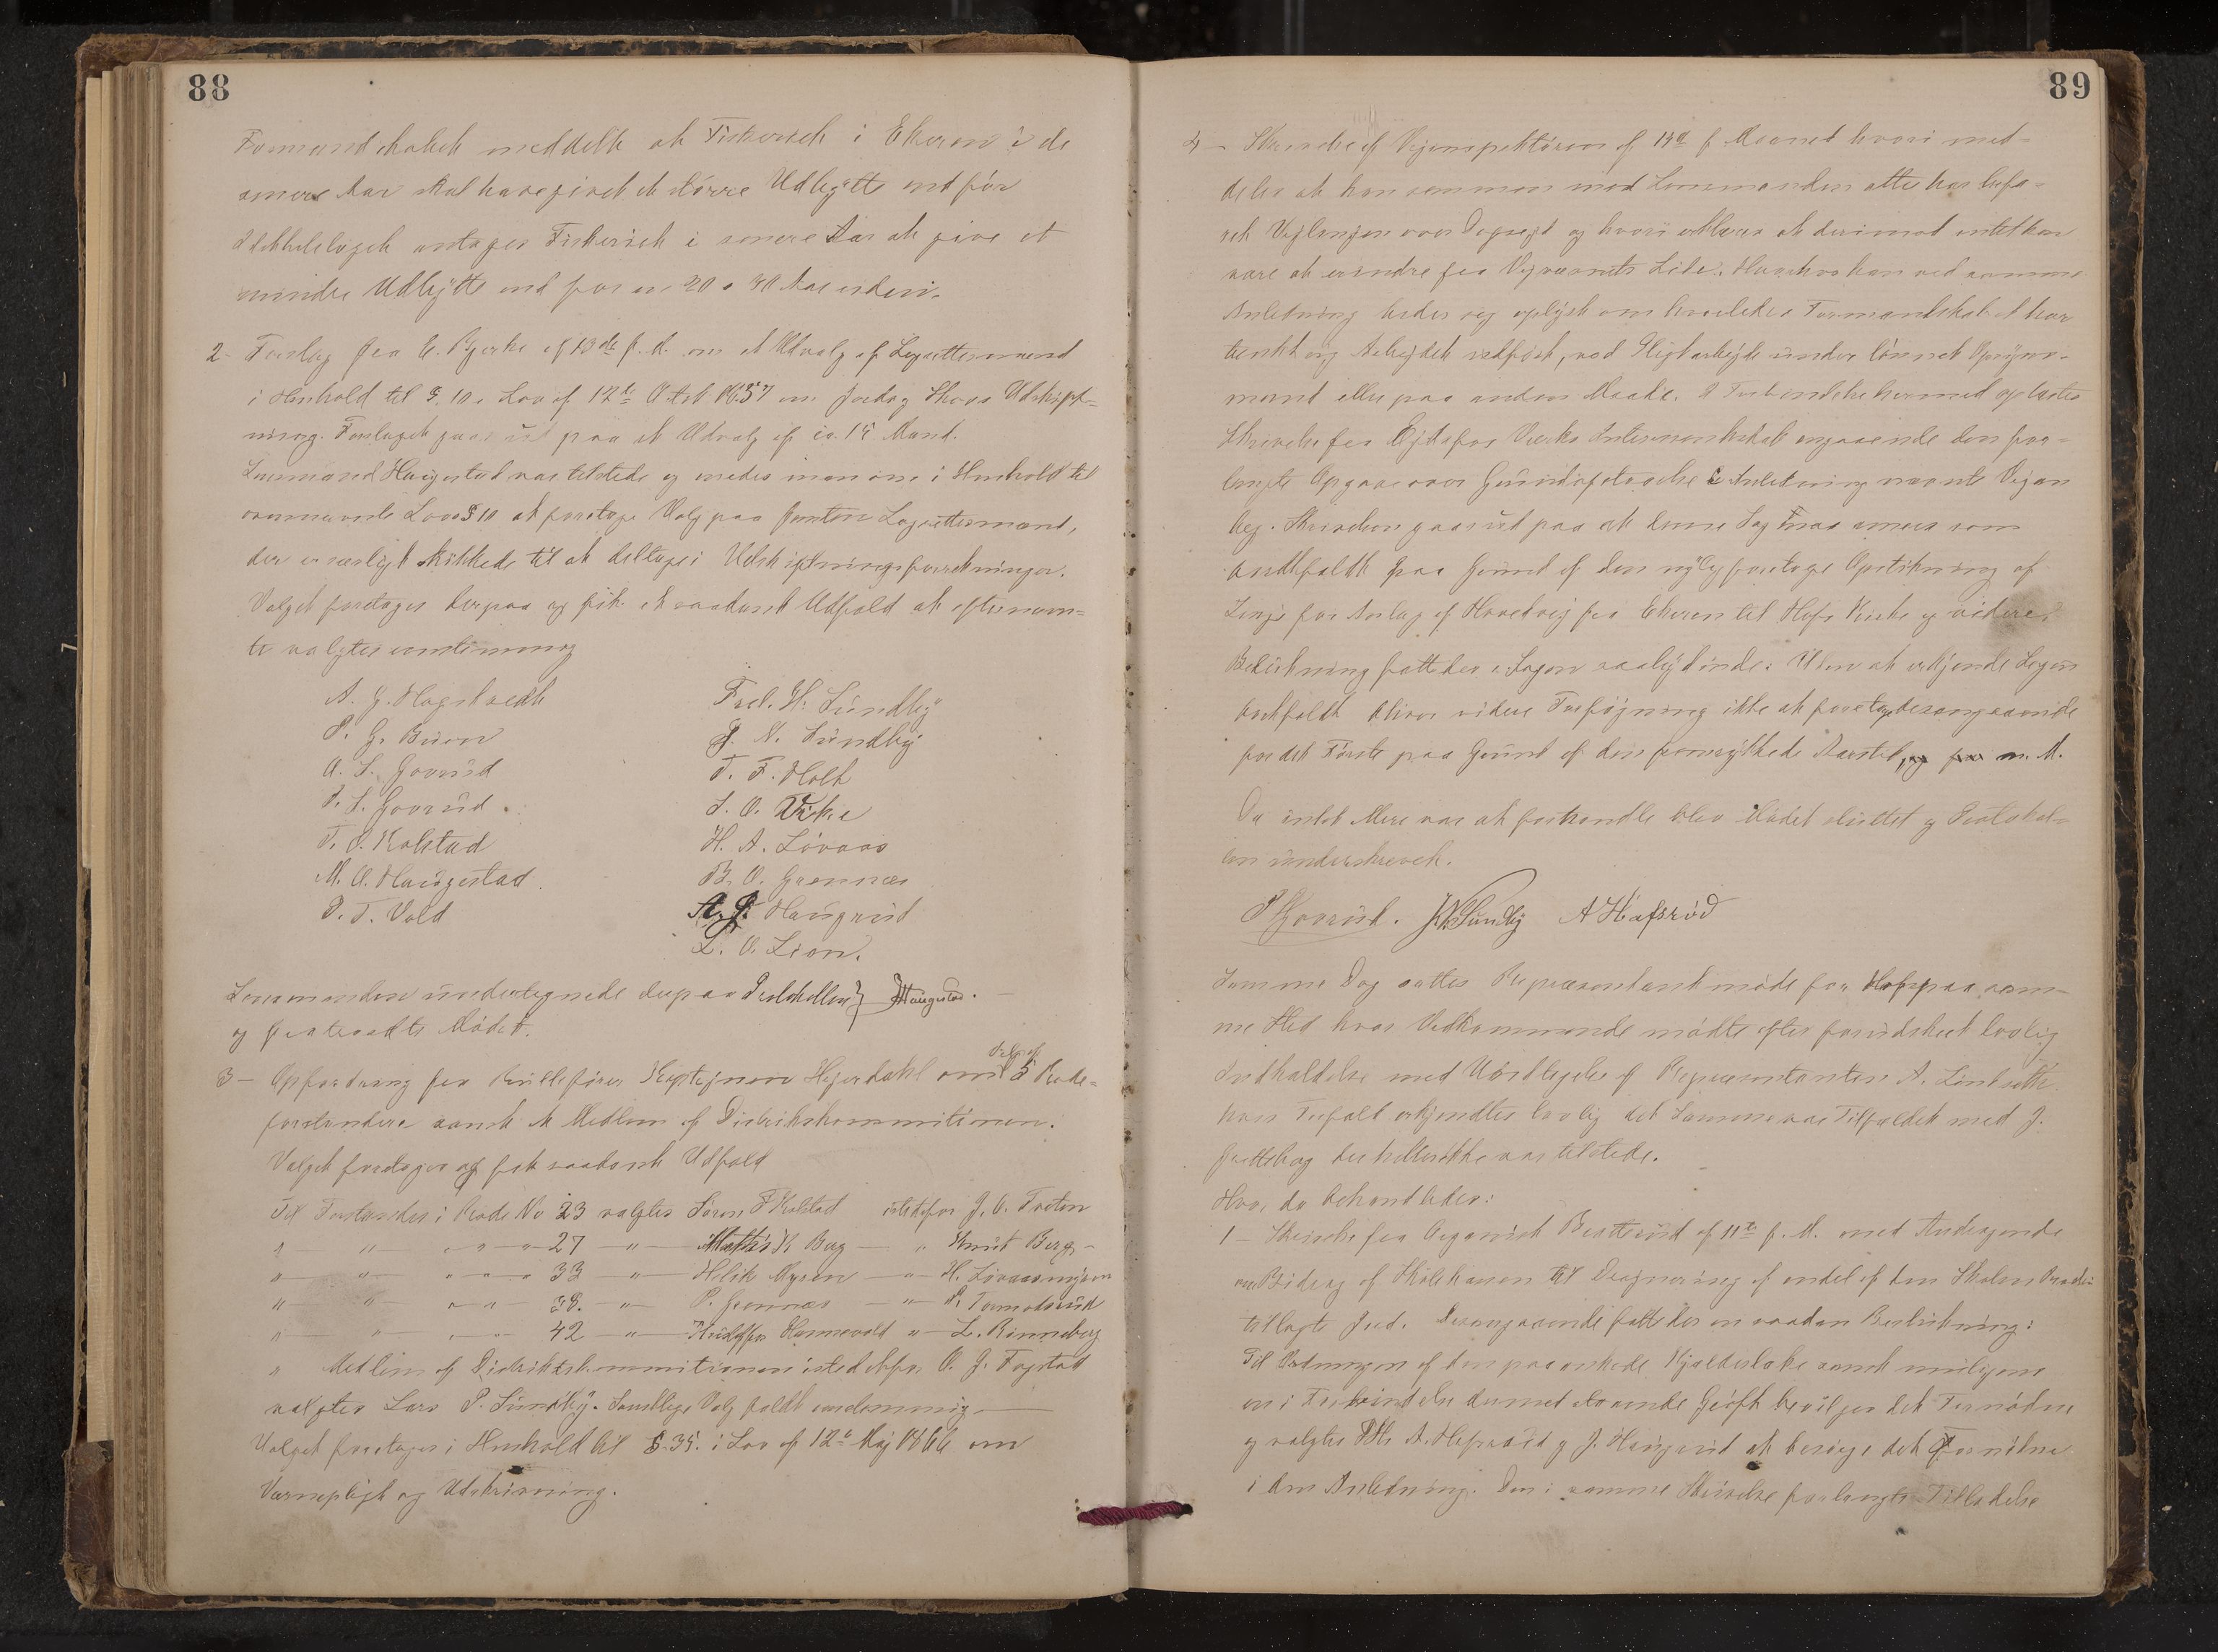 88
Formandskabet meddelte at Fiskeriet i Ekeren i de
senere Aar skal have givet et større Udbytte end før
antages Fiskeriet i senere Aar at give et
mindre Udbytte end for en 20 a 30 Aar siden.
2- Forslag fra E. Bjerke af 13de f. M. om et Udvalg af Lagrettesmænd
i Henhold til § 10 i Lov af 12te Octob 1857 om Jord og Skovs Udskift=
ning. Forslaget gaar ud paa et Udvalg af ca. 15 Mand.
Lensmand Haugestad var tilstede og enedes man om i Henhold til
ovennævnte Lovs § 10 at foretage Valg paa femten Lagrettesmænd,
der er særligt skikkede til at deltage i Udskiftningsforretninger.
Valget foretages derpaa og fik et saadant Udfald at efternævn=
te valgtes enstemmig
A. G. Hagstvedt
P. G. Buen
A. S. Goverud
P. S. Goverud
T. P. Kolstad
M. A. Haugestad
P. T. Vold
Fred. H. Sundby
J. N. Sundby
T. F. Holt
S. O. Vike
H. A. Løvaas
B. O. Grennæs
A. G. Haugerud
L. O. Lian.
Lensmanden undertegnede derpaa Protokollen } JHaugestad.
og fratraadte Mødet.
3- Opfordring fra Rulleføreren Kaptejnen Hejerdahl om Valg af 5 Rode=
forstandere samt et Medlem af Distriktskommitionen.
Valget foretages og fik saadant Udfald
Til Forstander i Rode No 23 valgtes Søren F Kolstad istedetfor J. O. Tveten
" " " " " 27 " Mathis K Berg " Knut Berg
" " " " " 33 " Helik Myren " H. Løvaasmyren
" " " " 38. " P. Grennæs " P. Tormodsrud
" " " " 42 " Kristoffer Hannevold " L. Rinneberg
" Medlem af Distriktskommitionen istedetfor O. J. Fagstad
valgtes Lars P. Sundby. Samtlige Valg faldt enstemmig.
Valget foretages i Henhold til § 35. i Lov af 12te Maj 1866 om
Værnepligt og Udskrivning.
89
4- Skrivelse af Vejinspektøren af 14de f. Maaned hvori med=
deles at han sammen med Lensmanden atter har befa=
ret Vejlinjen over og hvori erklæres at derimod intet kan
være at erindre fra Vejvæsnets Side. Hvorhos han ved samme
Anledning beder sig oplyst om hvorledes Formandskabet har
tænkt sig Arbejdet udført, ved Pligtarbejde under lønnet Opsyns=
mand eller paa anden Maade. I Forbindelse hermed oplæstes
Skrivelse fra Ejdsfos Værks Interessentskab angaaende den for=
langte Opgave over Grundafstaaelse i Anledning nævnte Vejan
læg. Skrivelsen gaar ud paa at denne Sag maa ansees som
bortfaldt paa Grund af den nylig foretagne Opstikning af
Linje for Anlæg af Hovedvej fra Ekeren til Hofs Kirke og videre.
Beslutning fattedes i Sagen saalydende: Uden at erkjende Sagen
bortfaldt bliver videre Forføjning ikke at foretage desangaaende
for det Første paa Grund af den fremrykkede Aarstid, m. M.
Da intet Mere var at forhandle blev Mødet sluttet og Protokol=
len underskrevet.
P Goverud. JNSundby A Hafsrød
Samme Dag sattes Repræsentantmøde for Hof paa sam=
me Sted hvor Vedkommende mødte efter forudskeet lovlig
Indkaldelse med Undtagelse af Repræsentanten A. Lindsæth
hvis Forfald erkjendtes lovlig det Samme var Tilfældet med J.
der heller ikke var tilstede.
Hvor da behandledes:
1- Skrivelse fra Organist Braaterud af 11te f. M. med Andragende
om Bidrag af Skolekassen til Drænering af endel af den Skolen
tillagte Jord. Desangaaende fattedes en saadan Beslutning:
Til af den paaanskede Kjælderluke samt muligens
en i Forbindelse dermed staaende Grøft bevilges det Fornødne
og valgtes DHr A. Hafsrød og J. Haugerud at besørge det Fornødne
i den Anledning. Den i samme Skrivelse forlangte Tilladelse